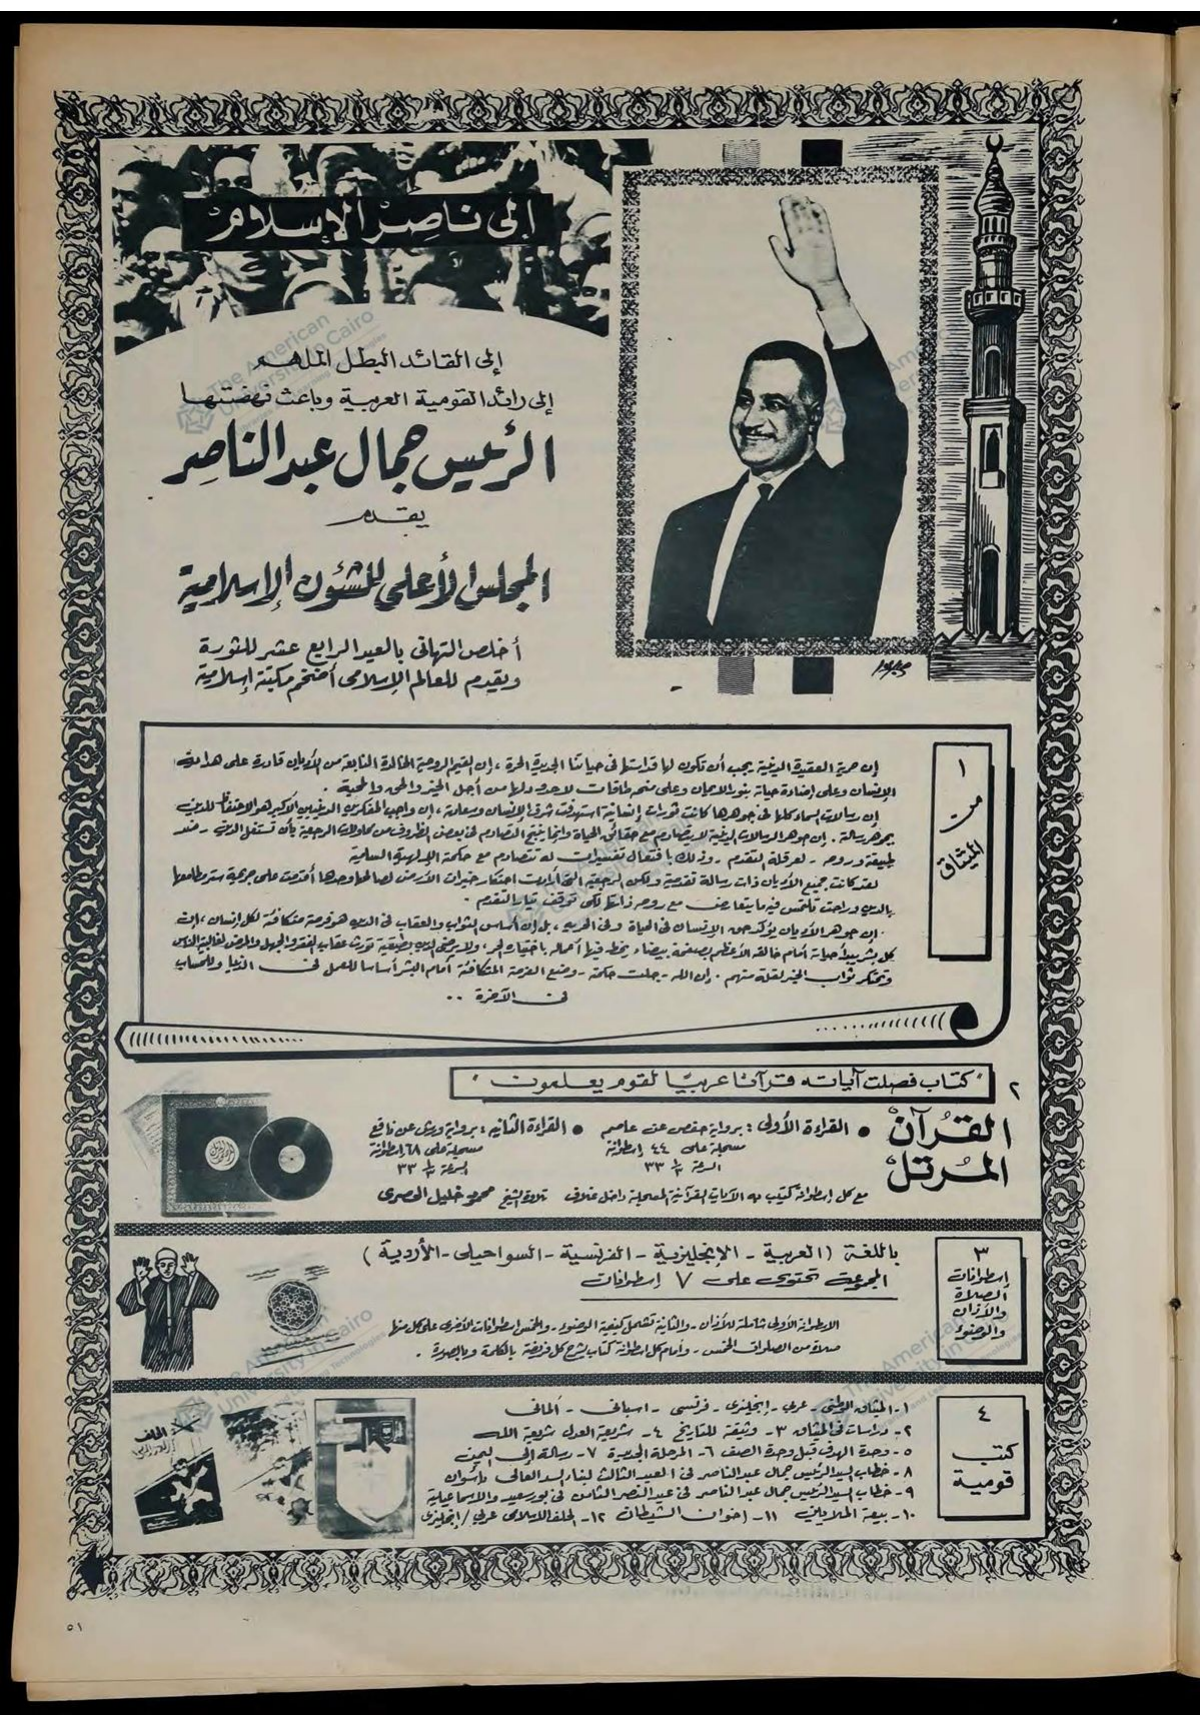 إلى ناصر الإسلام
إلى القائد البطل الملهم
إلى رائد القومية العربية وباعث نهضتها
الرئيس جمال عبد الناصر
يقدم
المجلس الأعلى للشئون الإسلامية
أخلص التهاني بالعيد الرابع عشر للثورة
ويقدم للعالم الإسلامى أضخم مكتبة إسلامية
١
من
الميثاق
إن حرية العقيدة الدينية يجب أن تكون لها قداستها فى حياتنا الجديدة الحرة ، إن القيم الروحية الخالدة النابعة من الأديان قادرة على هداية
الإنسان وعلى إضاءة حياته بنور الإيمان وعلى منحه طاقات لا حدود لها من أجل الخير والحق والمحبة .
إن رسالات السماء كلها فى جوهرها كانت ثورات إنسانية استهدفت شرف الإنسان وسعادته ، إن واجب المفكرين الدينيين الأكبر هو الاحتفاظ للدين
بجوهر رسالته . إن جوهر الرسالات الدينية لا يتصادم مع حقائق الحياة وإنما ينتج التصادم فى بعض الظروف من محاولات الرجعية بأن تستغل الدين - ضد
طبيعته وروحه - لعرقلة التقدم . وذلك بافتعال تفسيرات له تتصادم مع حكمته الإلهية السامية
لقد كانت جميع الأديان ذات رسالة تقدمية ولكن الرجعية التى أرادت احتكار خيرات الأرض لصالحها وحدها أقدمت على جريمة ستر مطامعها
بالدين وراحت تلتمس فيه ما يتعارض مع روحه ذاتها لكى توقف تيار التقدم .
إن جوهر الأديان يؤكد حق الإنسان فى الحياة وفى الحرية ، بل إن أساس الثواب والعقاب فى الدين هو فرصة متكافئة لكل إنسان ، إن
كل بشر يبدأ حياته أمام خالقه الأعظم بصفحة بيضاء يخط فيها أعماله باختياره الحر ، ولا يرضى الدين بطبقية تورث عقاب الفقر والجهل والمرض لغالبية الناس
وتحتكر ثواب الخير لقلة منهم . إن الله - جلت حكمته - وضع الفرصة المتكافئة أمام البشر أساسا للعمل فى الدنيا وللحساب
فى الآخرة ..
٢
"كتاب فصلت آياته قرآنا عربيا لقوم يعلمون"
القرآن
المرتل
• القراءة الأولى : برواية حفص عن عاصم
مسجلة على ٤٤ إسطوانة
السرعة ١/٣ ٣٣
• القراءة الثانية : برواية ورش عن نافع
مسجلة على ٦٨ إسطوانة
السرعة ١/٣ ٣٣
مع كل إسطوانة كتيب به الآيات القرآنية المسجلة داخل غلاف تلاوة الشيخ محمود خليل الحصرى
٣
إسطوانات
الصلاة
والأذان
والوضوء
باللغة (العربية - الإنجليزية - الفرنسية - السواحيلى - الأردية)
المجموعة تحتوى على ٧ إسطوانات
الإسطوانة الأولى شاملة للأذان - والثانية تشمل كيفية الوضوء - والخمس اسطوانات الأخرى على كل منها
صلاة من الصلوات الخمس - وأمام كل إسطوانة كتاب يشرح كل فريضة بالكلمة وبالصورة .
٤
كتب
قومية
١- الميثاق الوطنى - عربى - إنجليزى - فرنسى - اسبانى - ألمانى
٢- دراسات فى الميثاق ٣- وثيقة للتاريخ ٤- شريعة العدل شريعة الله
٥- وحدة الهدف قبل وحدة الصف ٦- المرحلة الجديدة ٧- رسالة إلى اليمن
٨- خطاب السيد الرئيس جمال عبد الناصر فى العيد الثالث لبناء السد العالى بأسوان
٩- خطاب السيد الرئيس جمال عبد الناصر فى عيد النصر الثامن فى بورسعيد والاسماعيلية
١٠- بيعة الملايين ١١- إخوان الشيطان ١٢- الحلف الإسلامى عربى / إنجليزى
الحلف
٥١
The American University in Cairo